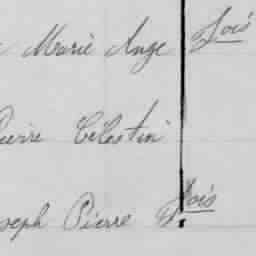 Marie Ange fois
Pierre Célestin
Joseph Pierre fois